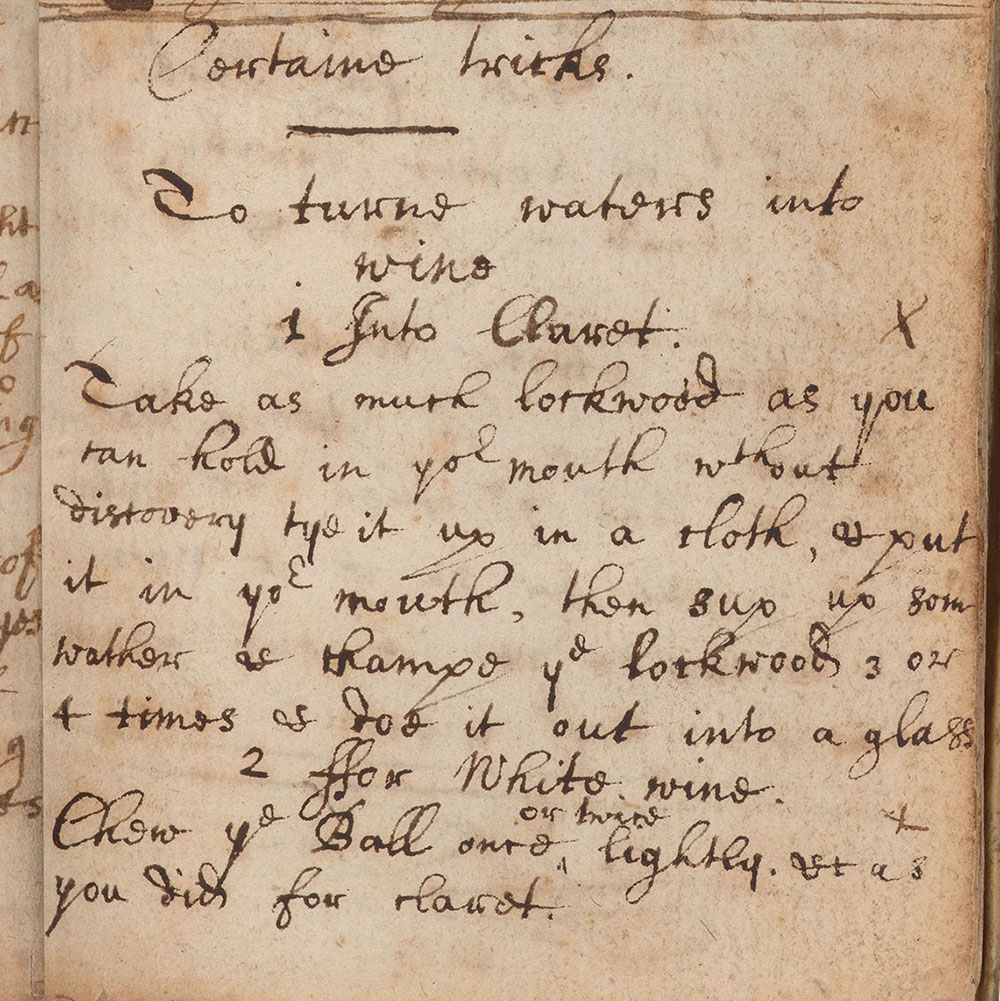 Certaine tricks.
To turne waters into
wine
1 Into Claret.
Take as much lockwood as you
can hold in yor mouth wthout
discovery tye it up in a cloth, & put
it in yor mouth, then sup up som
wather & champe ye lockwood 3 or
4 times & doe it out into a glass
2 ffor White wine.
Chew ye Ball once or twice lightly. &c as
you did for claret.